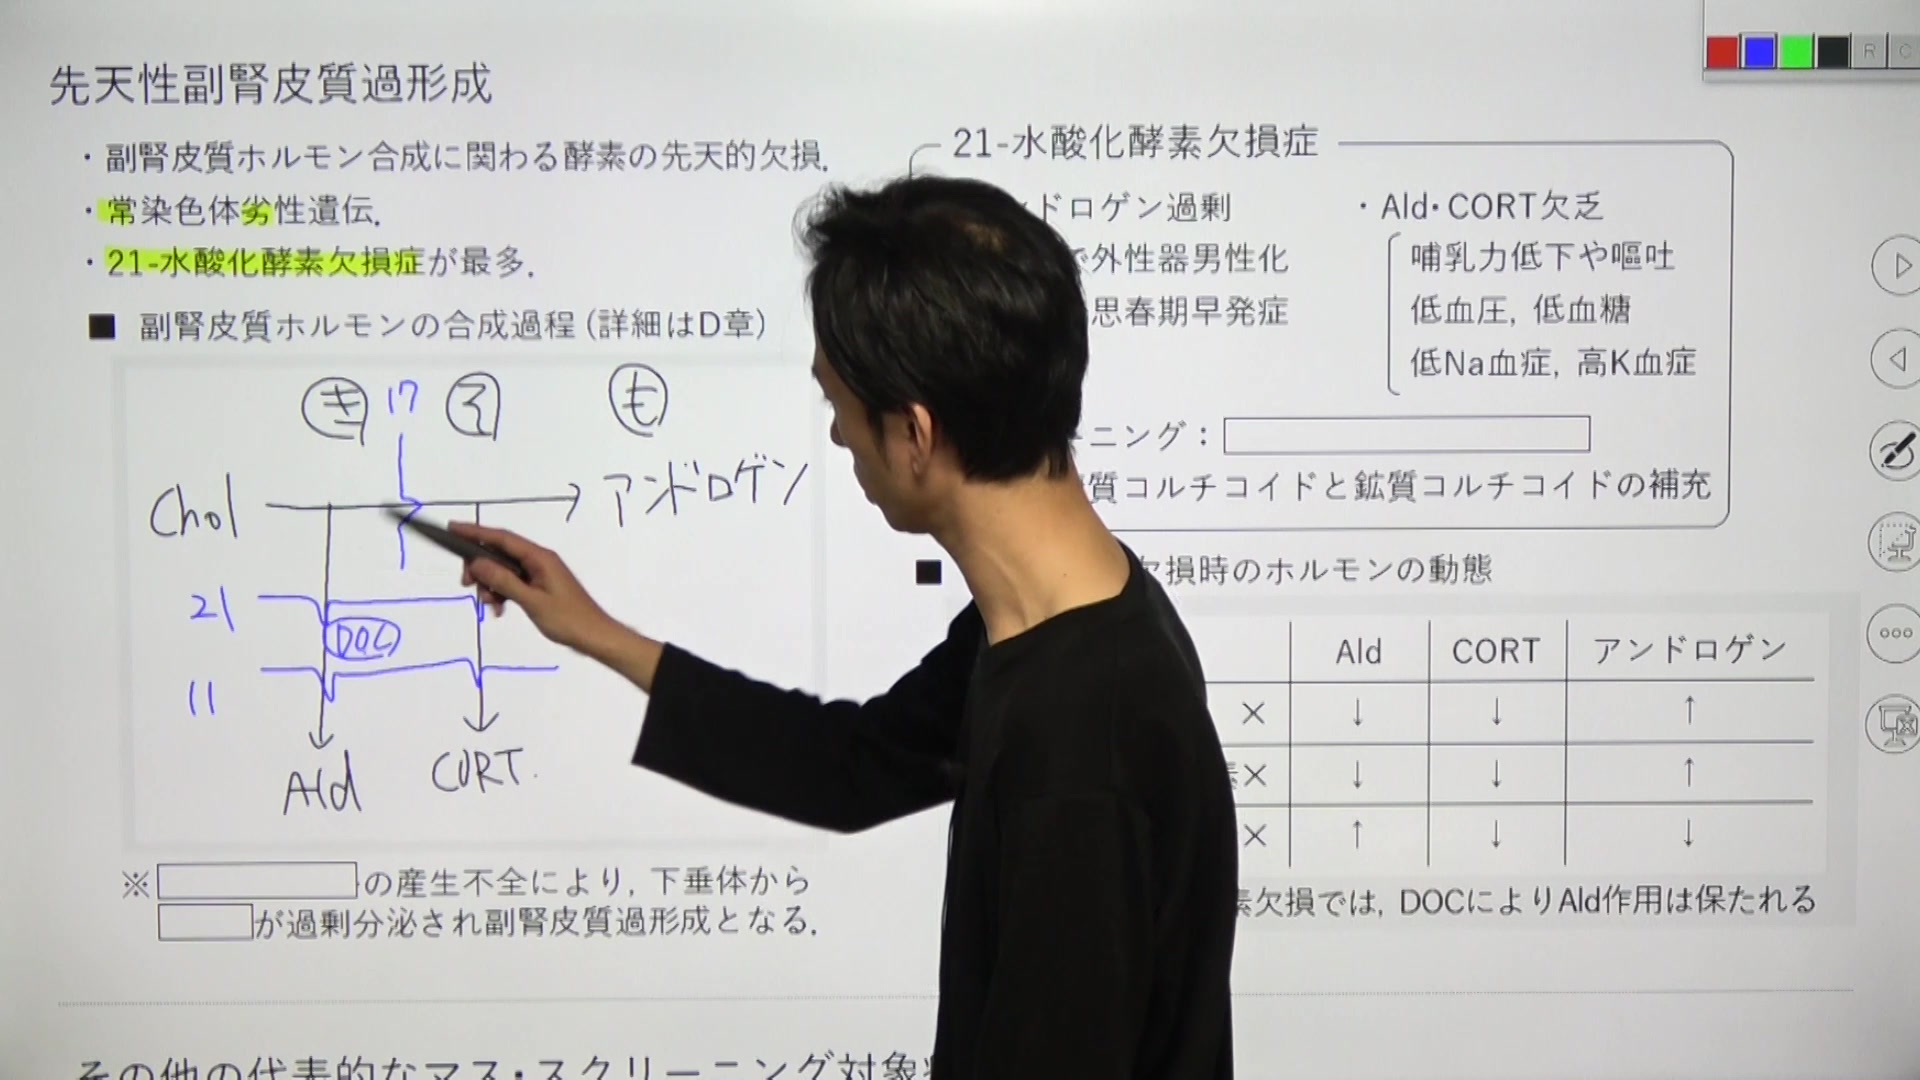 先天性副腎皮質過形成
・副腎皮質ホルモン合成に関わる酵素の先天的欠損.
・常染色体劣性遺伝.
・21-水酸化酵素欠損症が最多.
■ 副腎皮質ホルモンの合成過程(詳細はD章)
き 17 そ も
Chol アンドロゲン
21
DOC
11
Ald CORT.
※ の産生不全により, 下垂体から
が過剰分泌され副腎皮質過形成となる.
21-水酸化酵素欠損症
ドロゲン過剰
で外性器男性化
思春期早発症
・Ald・CORT欠乏
哺乳力低下や嘔吐
低血圧, 低血糖
低Na血症, 高K血症
ニング：
質コルチコイドと鉱質コルチコイドの補充
■ 欠損時のホルモンの動態
Ald CORT アンドロゲン
× ↓ ↓ ↑
素× ↓ ↓ ↑
× ↑ ↓ ↓
素欠損では, DOCによりAld作用は保たれる
その他の代表的なマス・スクリーニング対象
R C